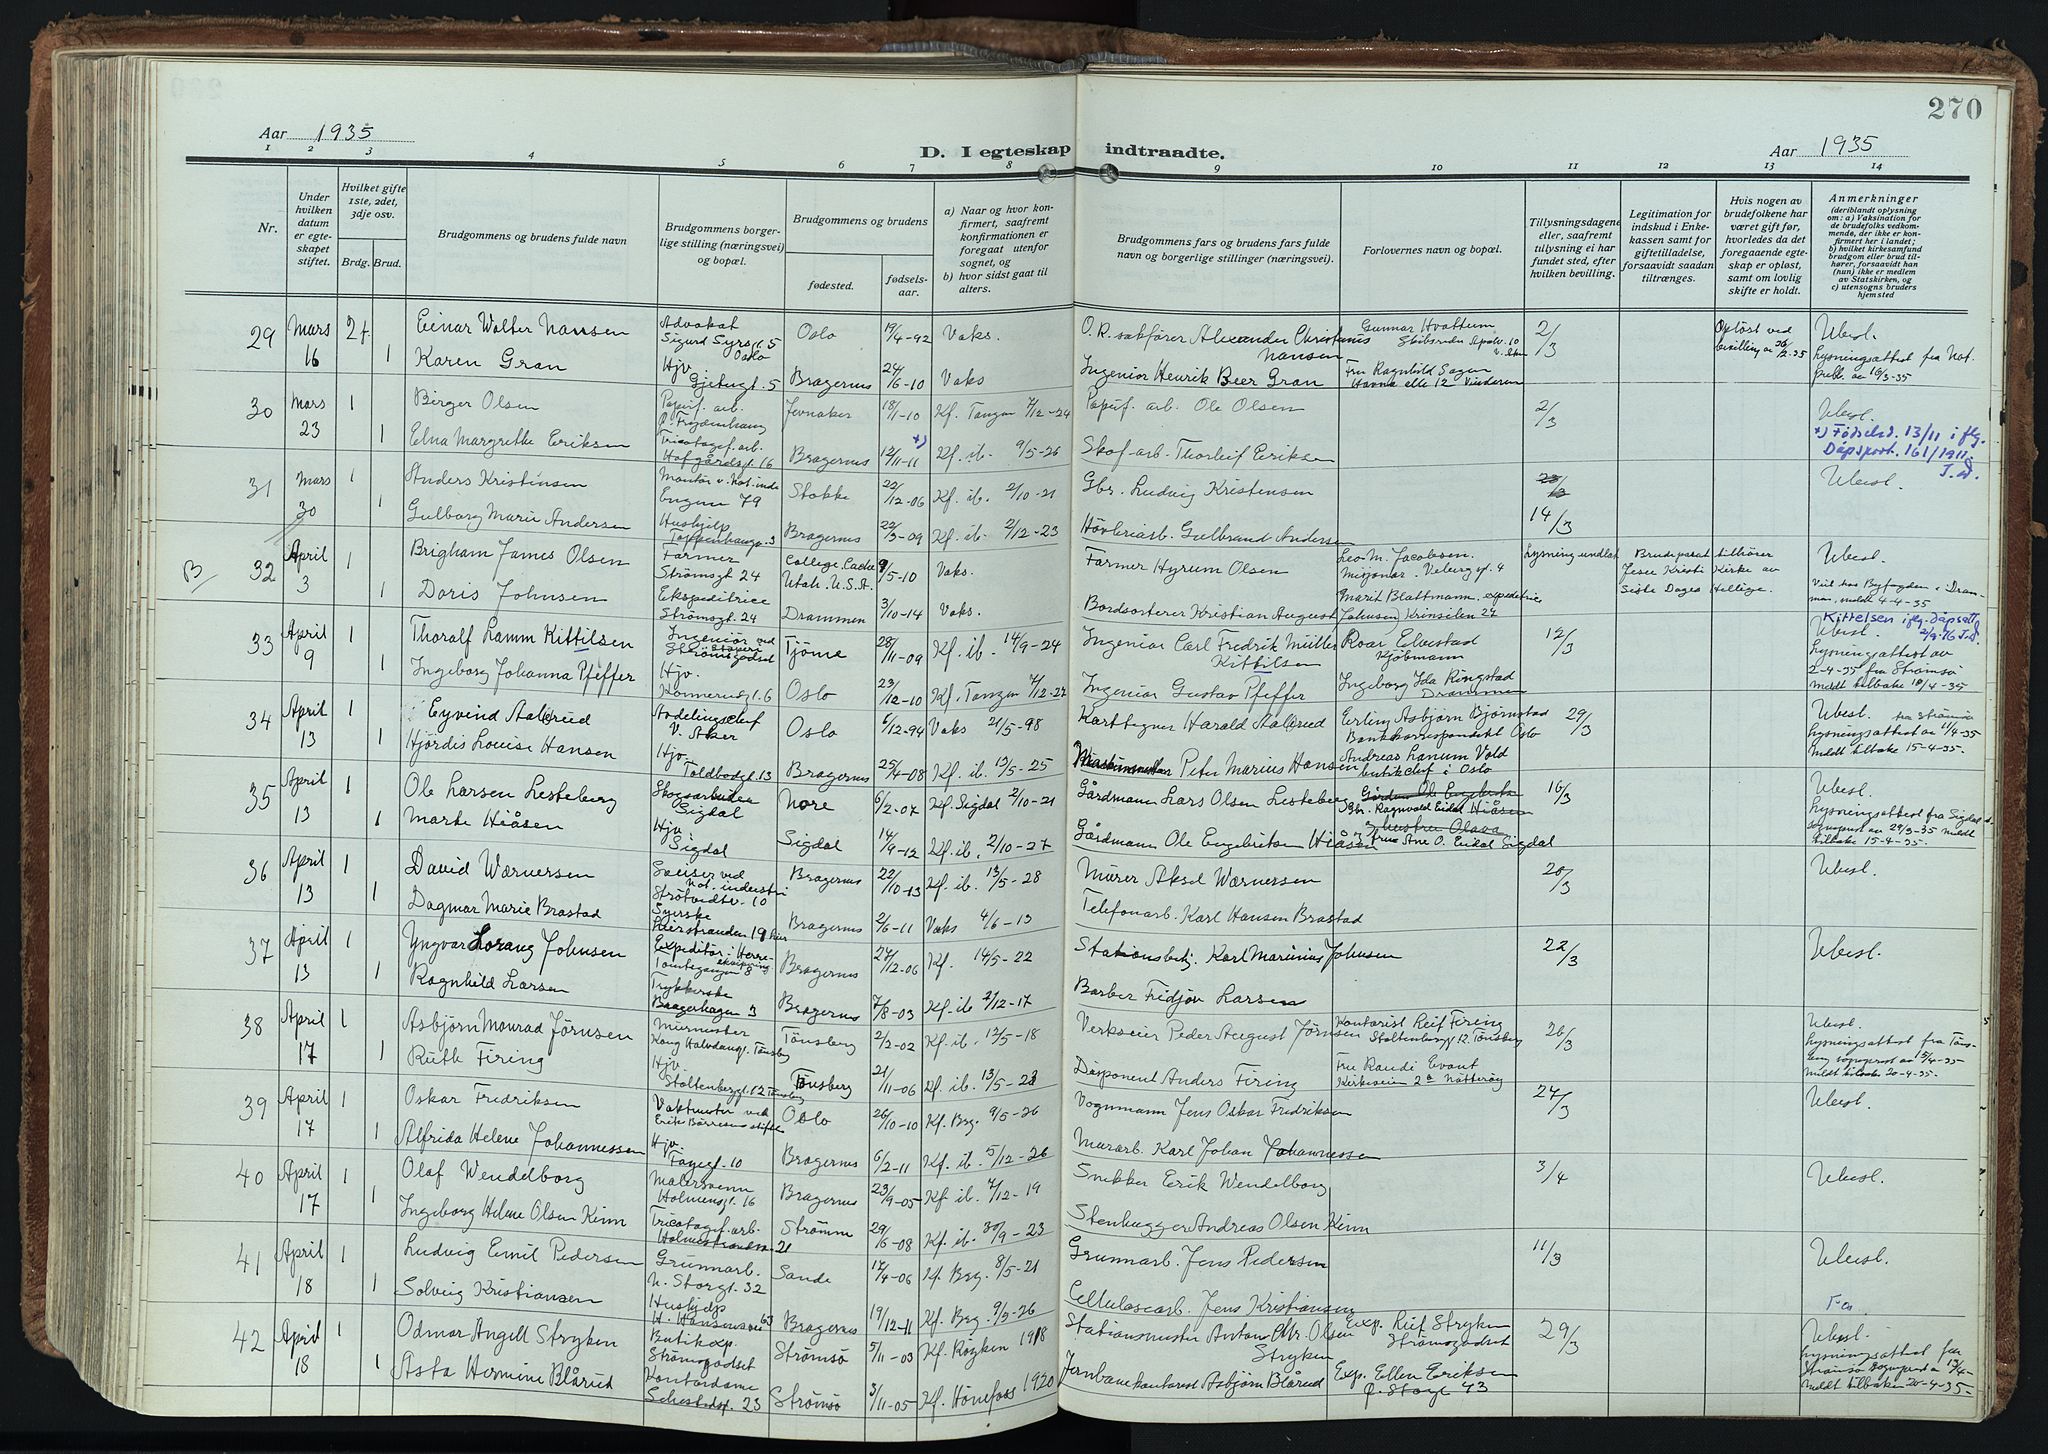 270
Aar 1935
D. I egteskap indtraadte.
Aar 1935
1 2 3 4 5 6 7 8 9 10 11 12 13 14
Nr.
Under hvilken datum er egteskapet stiftet.
Hvilket gifte 1ste, 2det, 3dje osv.
Brdg. Brud.
Brudgommens og brudens fulde navn
Brudgommens borgerlige stilling (næringsvei) og bopæl.
Brudgommens og brudens
fødested. fødselsaar.
a) Naar og hvor konfirmert, saafremt konfirmationen er foregaat utenfor sognet, og
b) hvor sidst gaat til alters.
Brudgommens fars og brudens fars fulde navn og borgerlige stillinger (næringsvei).
Forlovernes navn og bopæl.
Tillysningsdagene eller, saafremt tillysning ei har fundet sted, efter hvilken bevilling.
Legitimation for indskud i Enkekassen samt for giftetilladelse, forsaavidt saadan tiltrænges.
Hvis nogen av brudefolkene har været gift før, hvorledes da det foregaaende egteskap er opløst, samt om lovlig skifte er holdt.
Anmerkninger
(deriblandt oplysning om: a) Vaksination for de brudefolks vedkommende, der ikke er konfirmert her i landet; b) hvilket kirkesamfund brudgom eller brud tilhører, forsaavidt han (hun) ikke er medlem av Statskirken, og c) utensogns bruders hjemsted
29 Mars 16 2 f. Einar Walter Nansen Advokat Sigurd Syrsgt. 5 Oslo Oslo 19/4-92 Vaks. O.R. sakfører Alexander Christinus Nansen Gunnar Hvattum 2/3 Opløst ved bevilling av Ubesl.
1 Karen Gran Hjv. Gjetergt. 5 Bragernes 24/6-10 Vaks Ingeniør Henrik Beer Gran Fru Ragnhild Sagen Havna alle 12 Vinderen Lysningsattest fra Not. publ. av 16/3-35
30 Mars 23 1 Birger Olsen Papirf. arb. Jevnaker 18/1-10 Kf. Tangen 7/12-24 Papirf. arb. Ole Olsen 2/3 Ubesl.
1 Edna Margrethe Eriksen Tricotagef. arb. Hofgårdsgt. 16 Bragernes 12/11-11 +) Kf. ib. 9/5-26 Skof. arb. Thorleif Eriksen +) Fødselsd. 13/11 iflg. Dåpsprot. 161/1911.
31 Mars 30 1 Anders Kristensen Montør v. Nat. inds Engene 79 Stokke 22/12-06 Kf. ib. 2/10-21 Gbr. Ludvig Kristensen 23/3 14/3 Ubesl.
1 Gulborg Marie Andersen Hushjelp Toppenhaugen 3 Bragernes 22/3-09 Kf. ib. 2/12-23 Høvleriarb. Gulbrand Andersen
B/ 32 April 3 1 Brigham James Olsen Farmer Strømsgt. 24 College, Cache Utah. U.S.A. 9/5-10 Vaks. Farmer Hyrum Olsen Leo M. Jacobsen. Misjonær. Lysning undlat Brudeparet tilhører Jesu Kristi Kirke av Siste Dages Hellige. Ubesl.
1 Doris Johnsen Ekspeditrice Strømsgt. 24 Drammen 3/10-14 Vaks. Bordsorterer Kristian August Johnsen Marit Blattmann, expeditrice Viet hos Byfogden i Drammen, meldt 4-4-35
33 April 9 1 Thoralf Lamm Kittilsen Ingeniør ved Strømsgodset Tjøme 28/11-09 Kf. ib. 14/9-24 Ingeniør Carl Fredrik Müller Kittilsen Roar Elvestad Kjøbmann 12/3 Kittelsen iflg. dåpsatt. Ubesl.
1 Ingeborg Johanna Pfeffer Hjv. Konnerudgt. 6 Oslo 23/12-10 Kf. Tangen Ingeniør Gustav Pfeffer Ingeborg Ida Ringstad Drammen Lysningsattest av 2-4-35 fra Strømsø Meldt tilbake 10/4-35
34 April 13 1 Eyvind Aalerud Avdelingschef V. Aker Oslo 6/12-94 Vaks 21/5-98 Karttegner Harald Aalerud Erling Asbjørn Bjørnstad Bankkorrespondent Oslo 29/3 Ubesl. fra Strømsø
1 Hjördis Louise Hansen Hjv. Toldbodgt. 13 Bragernes 25/4-08 Kf. ib. 13/5-25 Peter Marius Hansen Andreas Lanum Vold butikchef i Oslo Lysningsattest av 11/4-35 Meldt tilbake 15-4-35.
35 April 13 1 Ole Larsen Lesteberg Skogsarbeider Sigdal Nore 6/2-07 Kf. Sigdal 2/10-21 Gårdmann Lars Olsen Lesteberg Gbr. Ragnvald Eidal 16/3 Ubesl.
1 Marte Hiåsen Hjv. Sigdal Sigdal 14/9-12 Kf. ib. 2/10-27 Gårdmann Ole Engebretsen Hiåsen frue Ane O. Eidal Sigdal Lysningsattest fra Sigdal sogneprest av 29/3-35 Meldt tilbake 15-4-35.
36 April 13 1 David Wærnersen Bragernes 22/10-13 Kf. ib. 13/5-28 Murer Aksel Wærnersen 20/3 Ubesl.
1 Dagmar Marie Brastad Syerske Lierstranden 19 Bragernes 2/6-11 Vaks 4/6-13 Telefonarb. Karl Hansen Brastad
37 April 13 1 Yngvar Lorang Johnsen Expeditør i Herreekvipering Bragernes 27/12-06 Kf. 14/5-22 Stationsbetj. Karl Marinius Johnsen 22/3 Ubesl.
1 Ragnhild Larsen Trykkerske Bragerhagen 3 Bragernes 7/8-03 Kf. ib 2/12-17 Barber Fridjov Larsen
38 April 17 1 Asbjørn Monrad Jørnsen Murmester Kong Halvdansgt. Tønsberg Tønsberg 2/2-02 Kf. ib. 12/5-18 Verkseier Peder August Jørnsen Kontorist Reif Firing Stoltenberggt 12. Tønsberg 26/3 Ubesl.
1 Ruth Firing Hjv. Stoltenberggt. 12 Tønsberg Tønsberg 21/11-06 Kf. ib 13/5-22 Disponent Anders Firing Fru Randi Evant Kirkeveien 2a Nøtterøy Lysningsattest fra Tønsberg sogneprest av 15/4-35 Meldt tilbake 20-4-35.
39 April 17 1 Oskar Fredriksen Vaktmester ved Erik Børresens stiftelse Oslo 26/10-10 Kf. Brg. 9/5-26 Vognmann Jens Oskar Fredriksen 27/3 Ubesl.
1 Alfrida Helene Johannessen Hjv. Fayegt. 10 Bragernes 6/2-11 Kf. ib. 5/12-26 Murarb. Karl Johan Johannessen
40 April 17 1 Olaf Wendelborg Malersvenn Holmensgt. 16 Bragernes 23/9-05 Kf. ib. 7/12-19 Snekker Erik Wendelborg 3/4 Ubesl.
1 Ingeborg Helene Olsen Kinn Tricotagef. arb. 21 Strømm 29/6-08 Kf. ib. 30/9-23 Stenhugger Andreas Olsen Kinn
41 April 18 1 Ludvig Emil Pedersen Grunnarb. N. Storgt. 32 Sande 17/4-06 Kf. Brg. 8/5-21 Grunnarb. Jens Pedersen 11/3 Ubesl.
1 Solveig Kristiansen Hushjelp H. Hansensvei 63 Bragernes 19/12-11 Kf. Brg. 9/5-26 Cellulosearb. Jens Kristiansen
42 April 18 1 Odmar Angell Stryken Butikexp. Strømsgodset Strømsø 5/11-03 Kf. Røyken 1918 Stationsmester Anton Chr. Olsen Stryken Exp. Reif Stryken Strømsgodset 29/3 Ubesl.
1 Asta Hermine Blårud Kontordame Strømsø 3/11-05 Kf. Hønefoss 1920 Jernbanekontorist Asbjørn Blårud Exp. Ellen Eriksen Ø. Storgt 43 Lysningsattest fra Strømsø Meldt tilbake 20-4-35